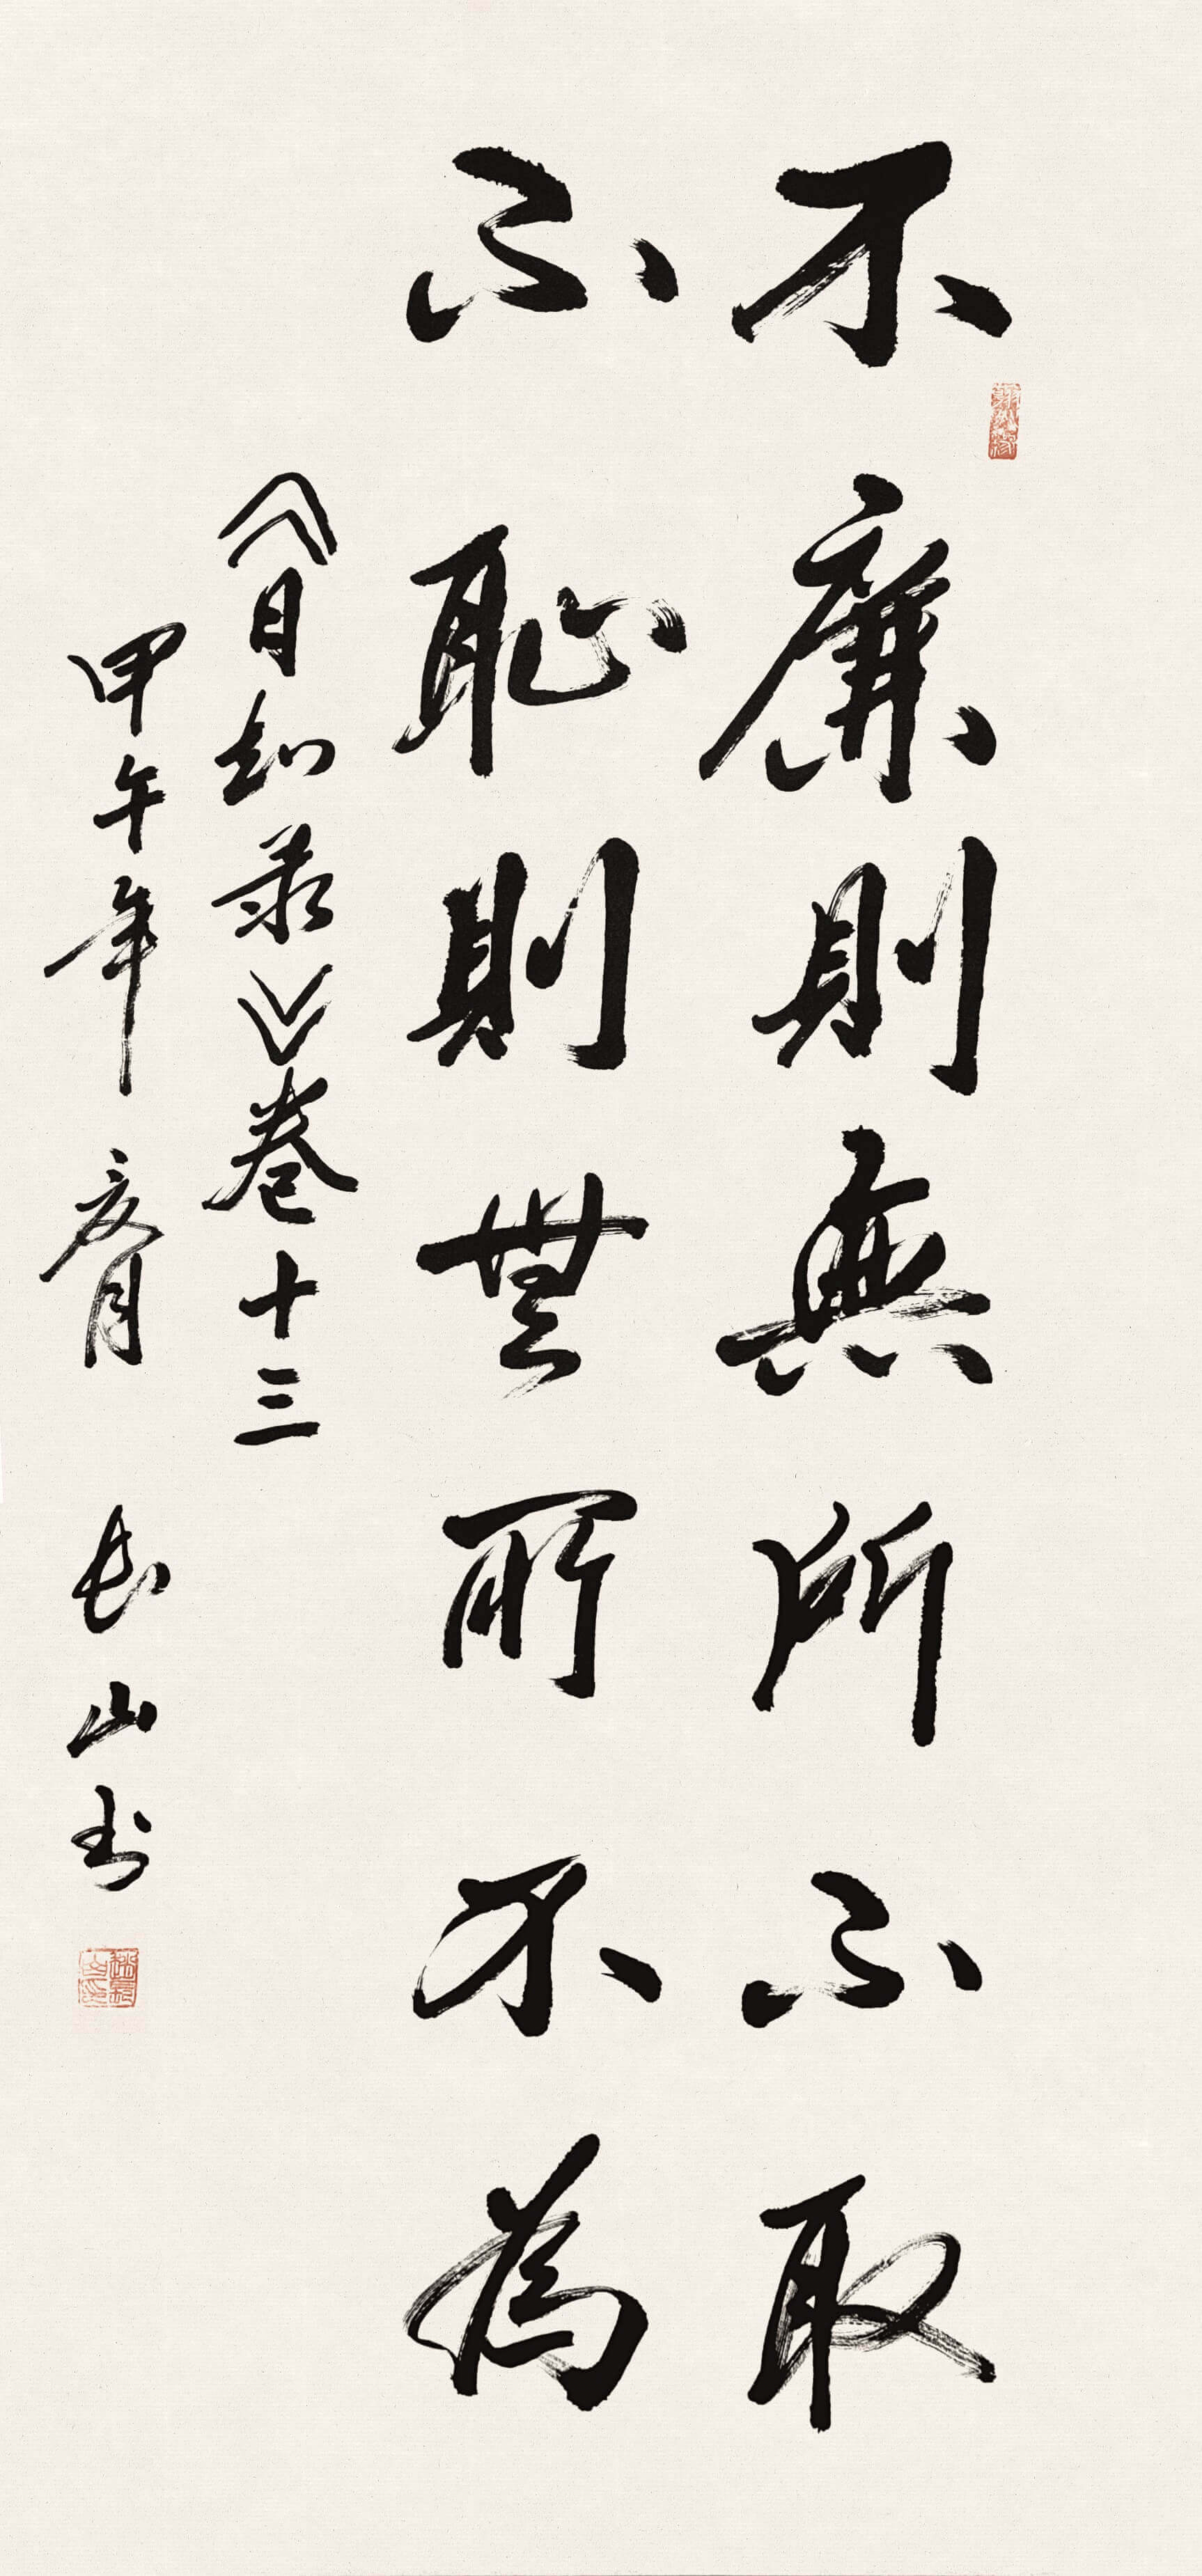 不廉則無所不取
不恥則無所不為
《日知录》卷十三
甲午年 亥月 長山书